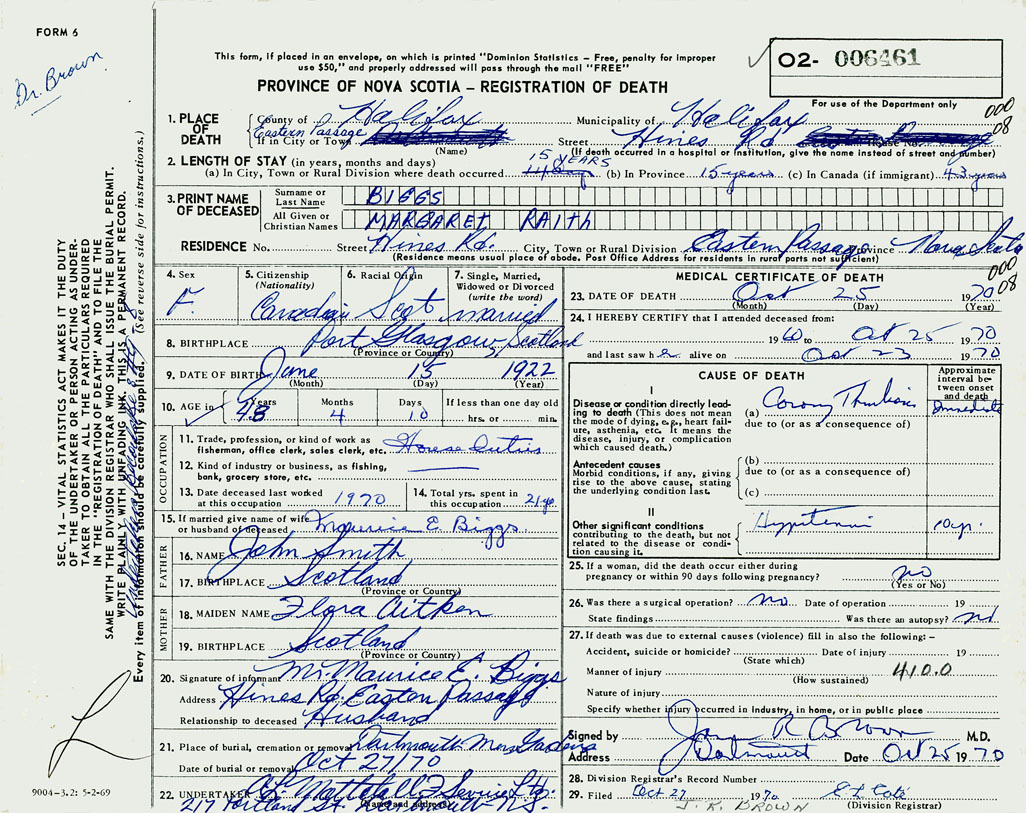 FORM 6
Dr. Brown
This form, if placed in an envelope, on which is printed "Dominion Statistics – Free, penalty for improper
use $50," and properly addressed will pass through the mail "FREE"
PROVINCE OF NOVA SCOTIA – REGISTRATION OF DEATH
O2- 006461
For use of the Department only
000
08
1. PLACE OF DEATH
County of Halifax Municipality of Halifax
Eastern Passage
If in City or Town Street Hines Rd House No.
(Name) (If death occurred in a hospital or institution, give the name instead of street and number)
2. LENGTH OF STAY (in years, months and days) 15 YEARS
(a) In City, Town or Rural Division where death occurred (b) In Province 15 years (c) In Canada (if immigrant) 43 years
3. PRINT NAME OF DECEASED
Surname or Last Name BIGGS
All Given or Christian Names MARGARET RAITH
RESIDENCE No. Street Hines Rd. City, Town or Rural Division Eastern Passage Province Nova Scotia
(Residence means usual place of abode. Post Office Address for residents in rural parts not sufficient)
4. Sex F.
5. Citizenship (Nationality) Canadian
6. Racial Origin Scot
7. Single, Married, Widowed or Divorced (write the word) married
8. BIRTHPLACE Port Glasgow, Scotland
(Province or Country)
9. DATE OF BIRTH June 15 1922
(Month) (Day) (Year)
10. AGE in Years 48 Months 4 Days 10 If less than one day old hrs. or min.
OCCUPATION
11. Trade, profession, or kind of work as fisherman, office clerk, sales clerk, etc. House Duties
12. Kind of industry or business, as fishing, bank, grocery store, etc.
13. Date deceased last worked at this occupation 1970
14. Total yrs. spent in this occupation 21 yr.
15. If married give name of wife or husband of deceased Maurice E. Biggs
FATHER
16. NAME John Smith
17. BIRTHPLACE Scotland
(Province or Country)
MOTHER
18. MAIDEN NAME Flora Aitken
19. BIRTHPLACE Scotland
(Province or Country)
20. Signature of informant Mr. Maurice E. Biggs
Address Hines Rd. Eastern Passage
Relationship to deceased Husband
21. Place of burial, cremation or removal Dartmouth Mem Gardens
Date of burial or removal Oct 27/70
22. UNDERTAKER Mattatall Service Ltd.
(Name and address)
217 Portland St. Dartmouth N.S.
MEDICAL CERTIFICATE OF DEATH
000
08
23. DATE OF DEATH Oct 25 1970
(Month) (Day) (Year)
24. I HEREBY CERTIFY that I attended deceased from:
1960 to Oct 25 1970
and last saw her alive on Oct 23 1970
CAUSE OF DEATH
Approximate interval between onset and death
I
Disease or condition directly leading to death (This does not mean the mode of dying, e.g., heart failure, asthenia, etc. It means the disease, injury, or complication which caused death.)
(a) Corony Thrombosis Immediate
due to (or as a consequence of)
Antecedent causes
Morbid conditions, if any, giving rise to the above cause, stating the underlying condition last.
(b)
due to (or as a consequence of)
(c)
II
Other significant conditions contributing to the death, but not related to the disease or condition causing it.
Hypertension 10 yr.
25. If a woman, did the death occur either during pregnancy or within 90 days following pregnancy? no
(Yes or No)
26. Was there a surgical operation? no Date of operation 19
State findings Was there an autopsy? no
27. If death was due to external causes (violence) fill in also the following: –
Accident, suicide or homicide? Date of injury 19
(State which)
Manner of injury 410.0
(How sustained)
Nature of injury
Specify whether injury occurred in industry, in home, or in public place
Signed by R Brown M.D.
Address Dartmouth Date Oct 25 1970
28. Division Registrar's Record Number
29. Filed Oct 27 1970 E. L. Cole
J. R. BROWN (Division Registrar)
SEC. 14 – VITAL STATISTICS ACT MAKES IT THE DUTY
OF THE UNDERTAKER OR PERSON ACTING AS UNDER-
TAKER TO OBTAIN ALL THE PARTICULARS REQUIRED
IN THE "REGISTRATION OF DEATH" AND TO FILE THE
SAME WITH THE DIVISION REGISTRAR WHO SHALL ISSUE THE BURIAL PERMIT.
WRITE PLAINLY WITH UNFADING INK. THIS IS A PERMANENT RECORD.
Every item of information should be carefully supplied. (See reverse side for instructions.)
9004-3.2: 5-2-69